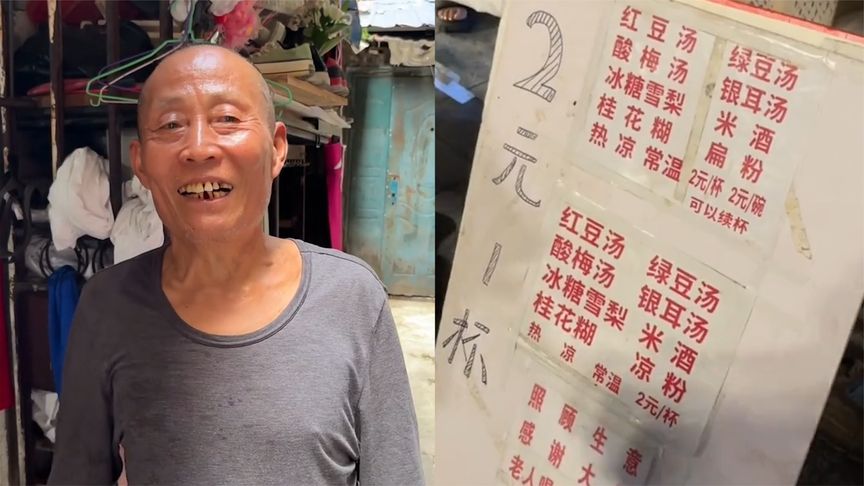 2元1杯
红豆汤
酸梅汤
冰糖雪梨
桂花糊
热凉常温
绿豆汤
银耳汤
米酒
扁粉
2元/杯 2元/碗
可以续杯
红豆汤
酸梅汤
冰糖雪梨
桂花糊
热凉常温
绿豆汤
银耳汤
米酒
凉粉
2元/杯
照顾生意
感谢大
老人喝